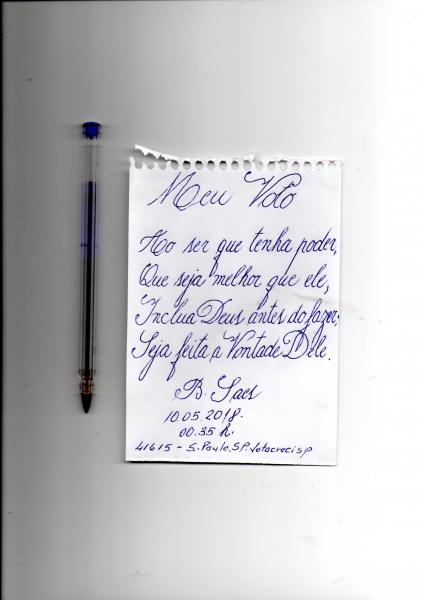 Meu Voto
Ao ser que tenha poder,
Que seja melhor que ele,
Inclua Deus antes do fazer;
Seja feita a Vontade Dele.
B. Saes
10.05.2018.
00.35 h.
41615 - S. Paulo. SP. Votocrecisp